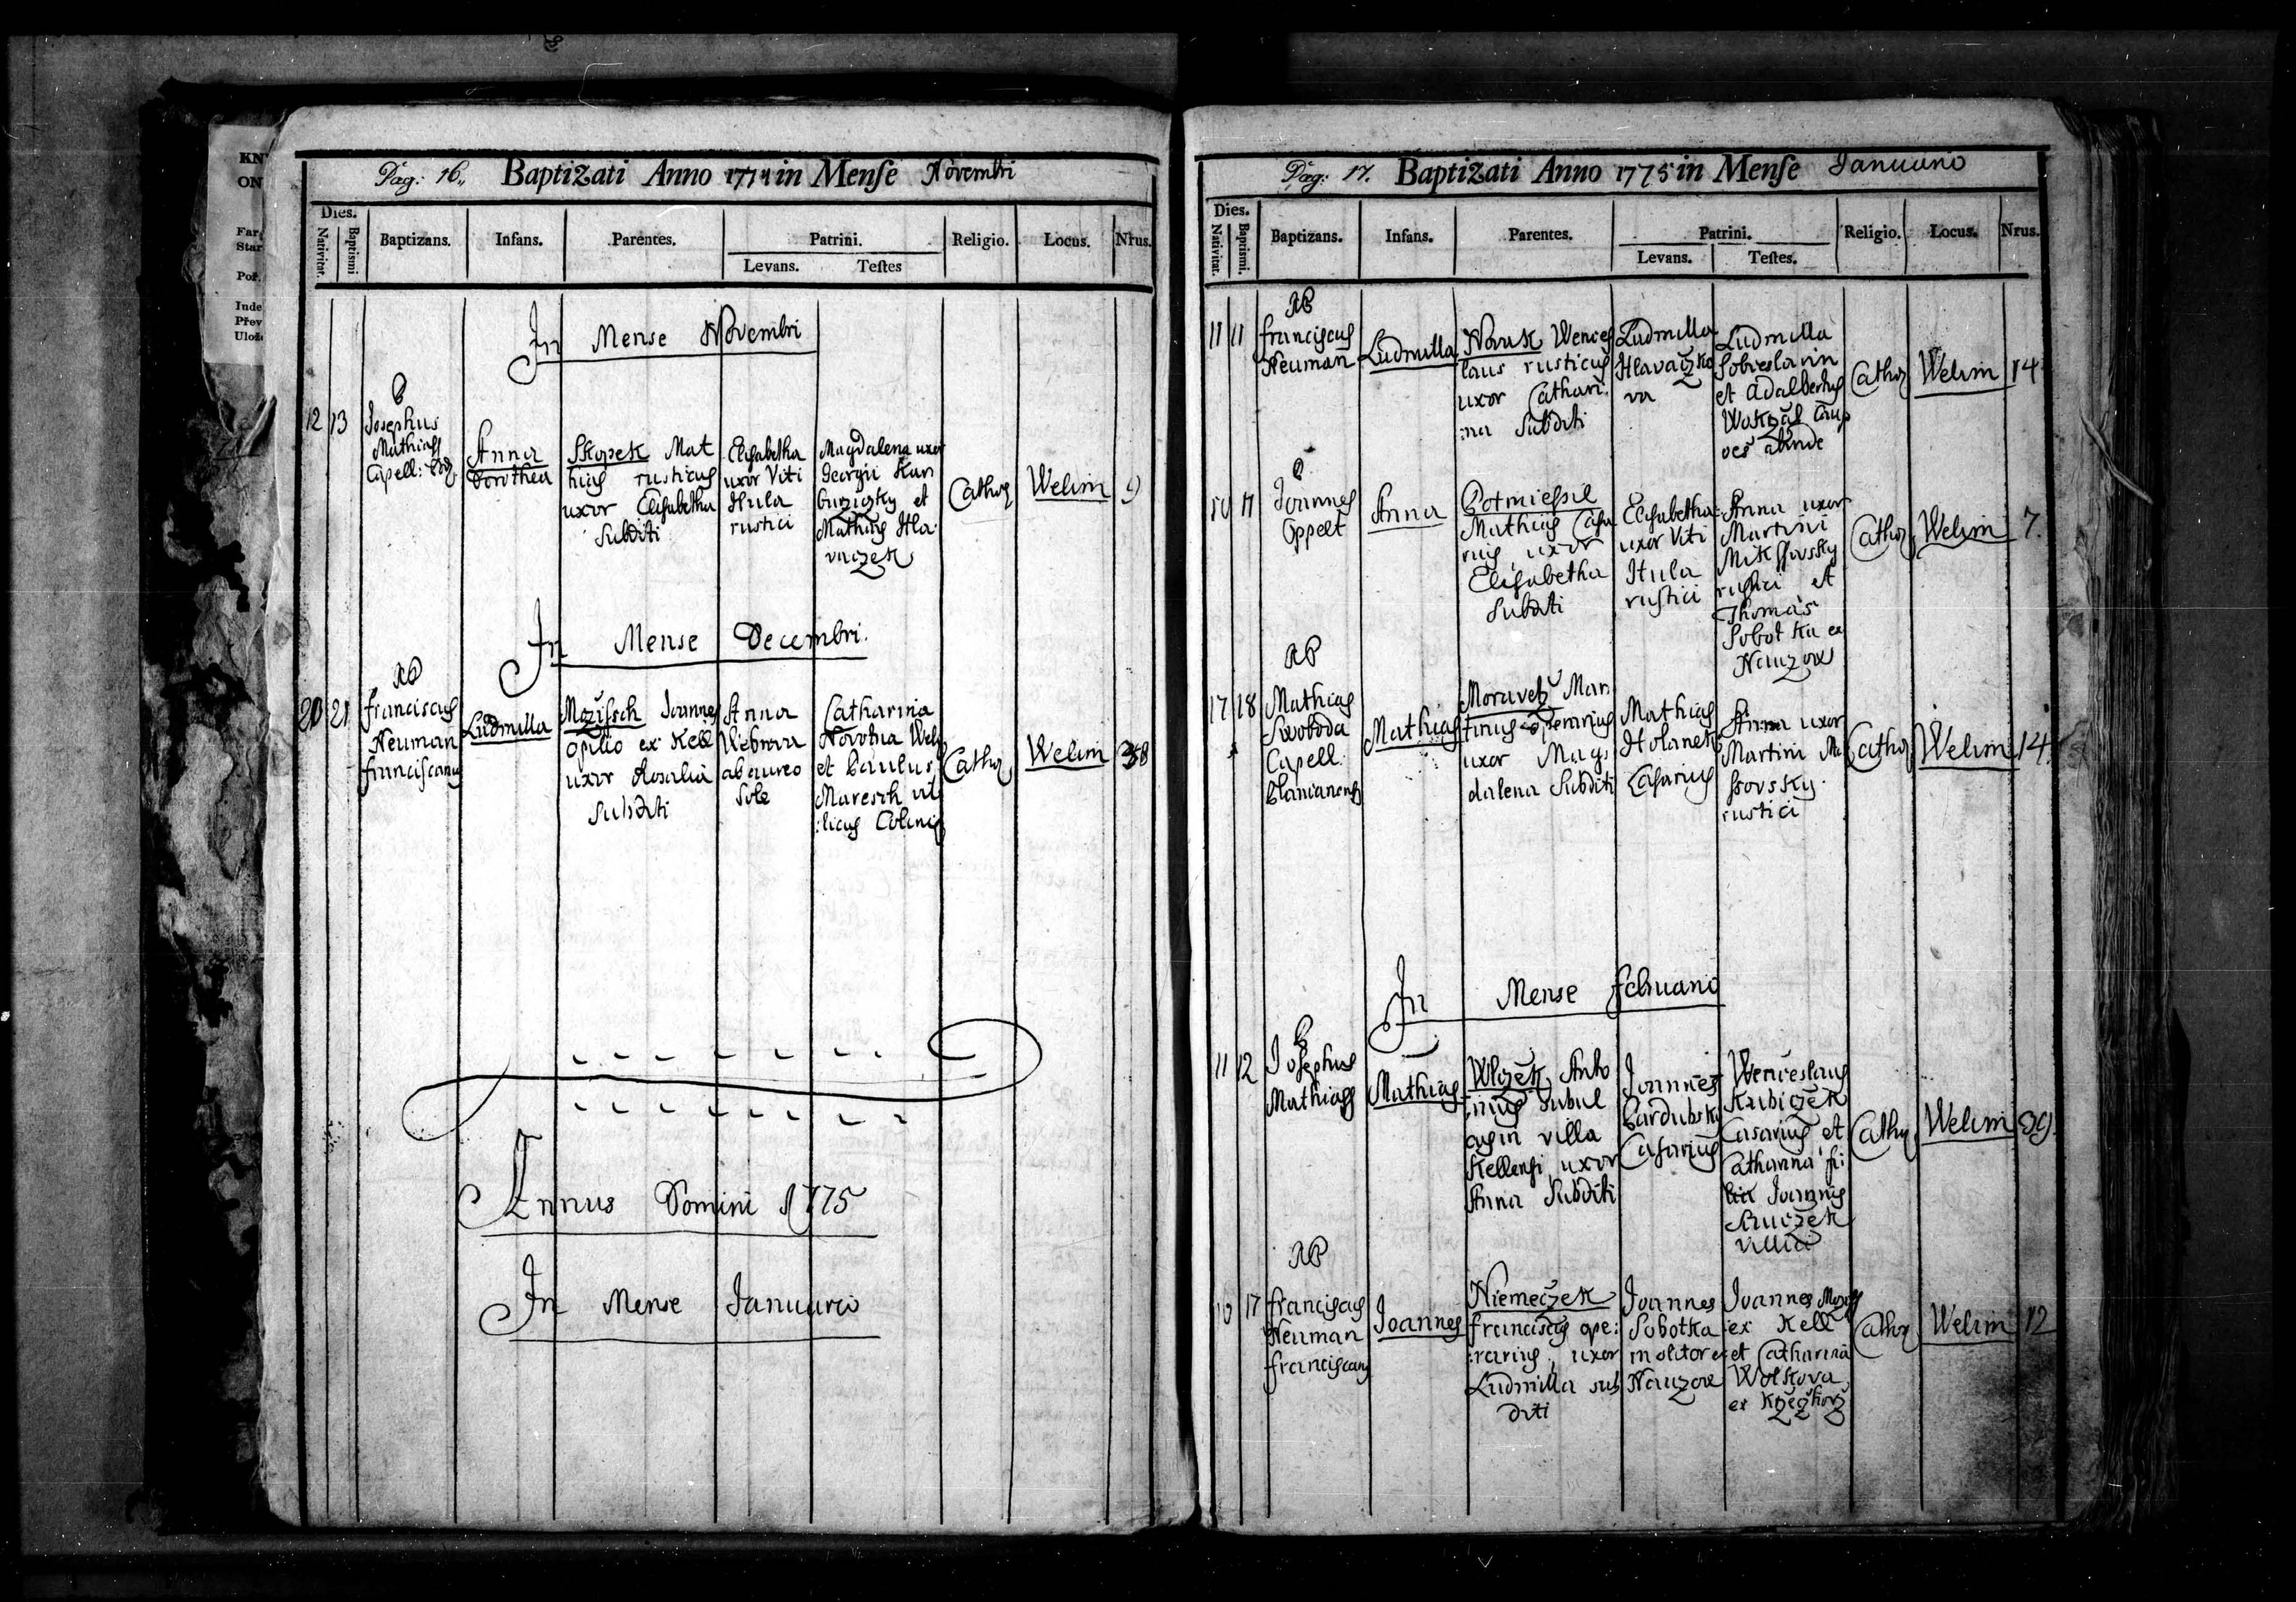 KN
ON
Far
Star
Poř.
Inde
Přev
Ulož
Pag: 16., Baptizati Anno 1774 in Mense Novembri
Dies.
Nativitat. Baptismi Baptizans. Infans. Parentes. Patrini. Religio. Locus. Nrus.
Levans. Testes
In Mense Novembri
12 13
Josephus
Mathiass
Capell:
Anna
Dorothea
Skopek Mat
hias rusticus
uxor Elisabetha
Subditi
Elisabetha
uxor Viti
Hula
rustici
Magdalena uxor
Georgii Kan
et
Mathias Hla
vaczek
Cathol
Welim
9
In Mense Decembri.
20 21
AP
Franciscus
Neuman
Franciscanus
Ludmilla
Joannes
opilio ex Kell
uxor Rosalia
Subditi
Anna
Webrova
ab aureo
Sole
Catharina
Novotna Wel
et Paulus
Maresch vil
:licus Colinij
Cathol
Welim
38
Annus Domini 1775
In Mense Januario
Pag: 17. Baptizati Anno 1775 in Mense Januario
Dies.
Nativitat. Baptismi. Baptizans. Infans. Parentes. Patrini. Religio. Locus. Nrus.
Levans. Testes.
11 11
AP
Franciscus
Neuman
Ludmilla
Novak Wences
laus rusticus
uxor Cathari
:na Subditi
Ludmilla
Hlavaczko
va
Ludmilla
Sobieslavin
et Adalbertus
Cathol
Welim
14
17
P
Joannes
Oppelt
Anna
Potmiessil
Mathias Casa
rius, uxor
Elisabetha
Subditi
Elisabetha
uxor Viti
Hula
rustici
Anna uxor
Martini
rustici et
Thomas
Sobotka ex
Nauzow
Cathol
Welim
7.
17 18
AP
Mathias
Swoboda
Capell.
Planianensis
Mathias
Moravetz Mar
tinus operarius
uxor Mag
dalena Subditi
Mathias
Holanek
Casarius
Anna uxor
Martini Mi
ssovsky
rustici
Cathol
Welim
14.
In Mense Februario
11 12
P
Josephus
Mathiass
Mathias
Wlczek Anto
nius Subul
cus in villa
Kellensi uxor
Anna Subditi
Joannes
Pardubsky
Casarius
Wenceslaus
Kubiczek
Casarius et
Catharina fi
lia Joannis
villici
Cathol
Welim
39
16 17
AP
Franciscus
Neuman
Franciscanus
Joannes
Niemeczek
Franciscus ope:
:rarius, uxor
Ludmilla sub
diti
Joannes
Sobotka
molitor ex
Nauzow
Joannes
ex Kell
et Catharina
Wolkova
ex Krzeczhorz
Cathol
Welim
12